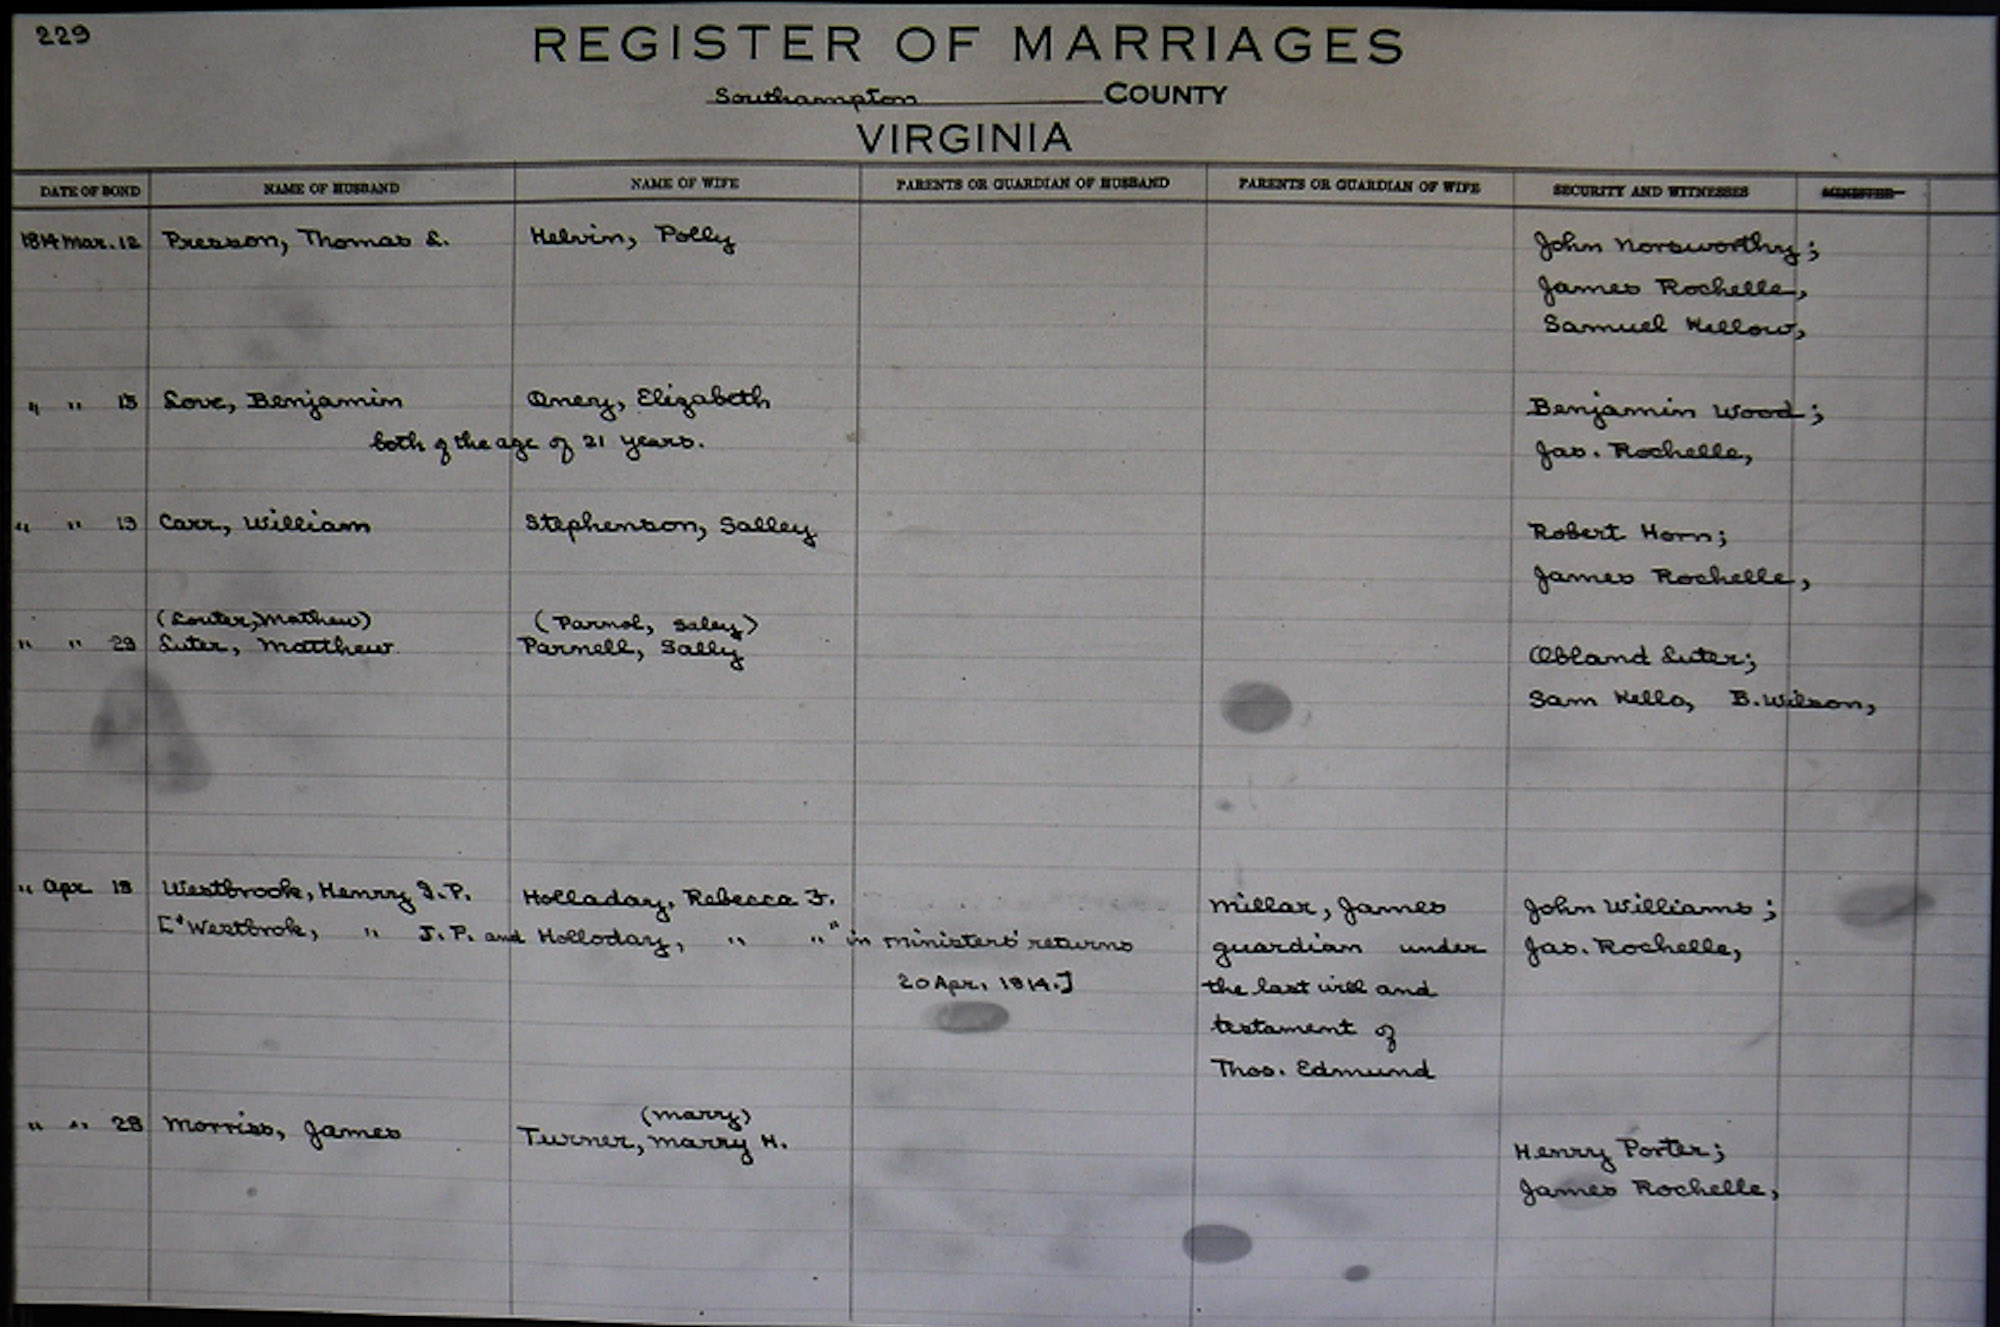 229
REGISTER OF MARRIAGES
Southampton COUNTY
VIRGINIA
DATE OF BOND NAME OF HUSBAND NAME OF WIFE PARENTS OR GUARDIAN OF HUSBAND PARENTS OR GUARDIAN OF WIFE SECURITY AND WITNESSES MINISTER
1814 Mar. 12 Presson, Thomas L. Helvin, Polly John Norsworthy;
James Rochelle,
Samuel Kellow,
" " 15 Love, Benjamin Onery, Elizabeth Benjamin Wood;
both of the age of 21 years. Jas. Rochelle,
" " 19 Carr, William Stephenson, Salley Robert Horn;
James Rochelle,
(Louter, Mathew) (Parnol, Saley)
" " 29 Luter, Matthew Parnell, Sally Obland Luter;
Sam Kello, B. Wilson,
" Apr. 18 Westbrook, Henrry J. P. Holladay, Rebecca F. Millar, James John Williams;
["Westbrok, " J. P. and Holloday, " "" in ministers' returns guardian under Jas. Rochelle,
20 Apr. 1814.] the last will and
testament of
Thos. Edmund
(Marry)
" " 28 Morriss, James Turner, Marry H. Henry Porter;
James Rochelle,